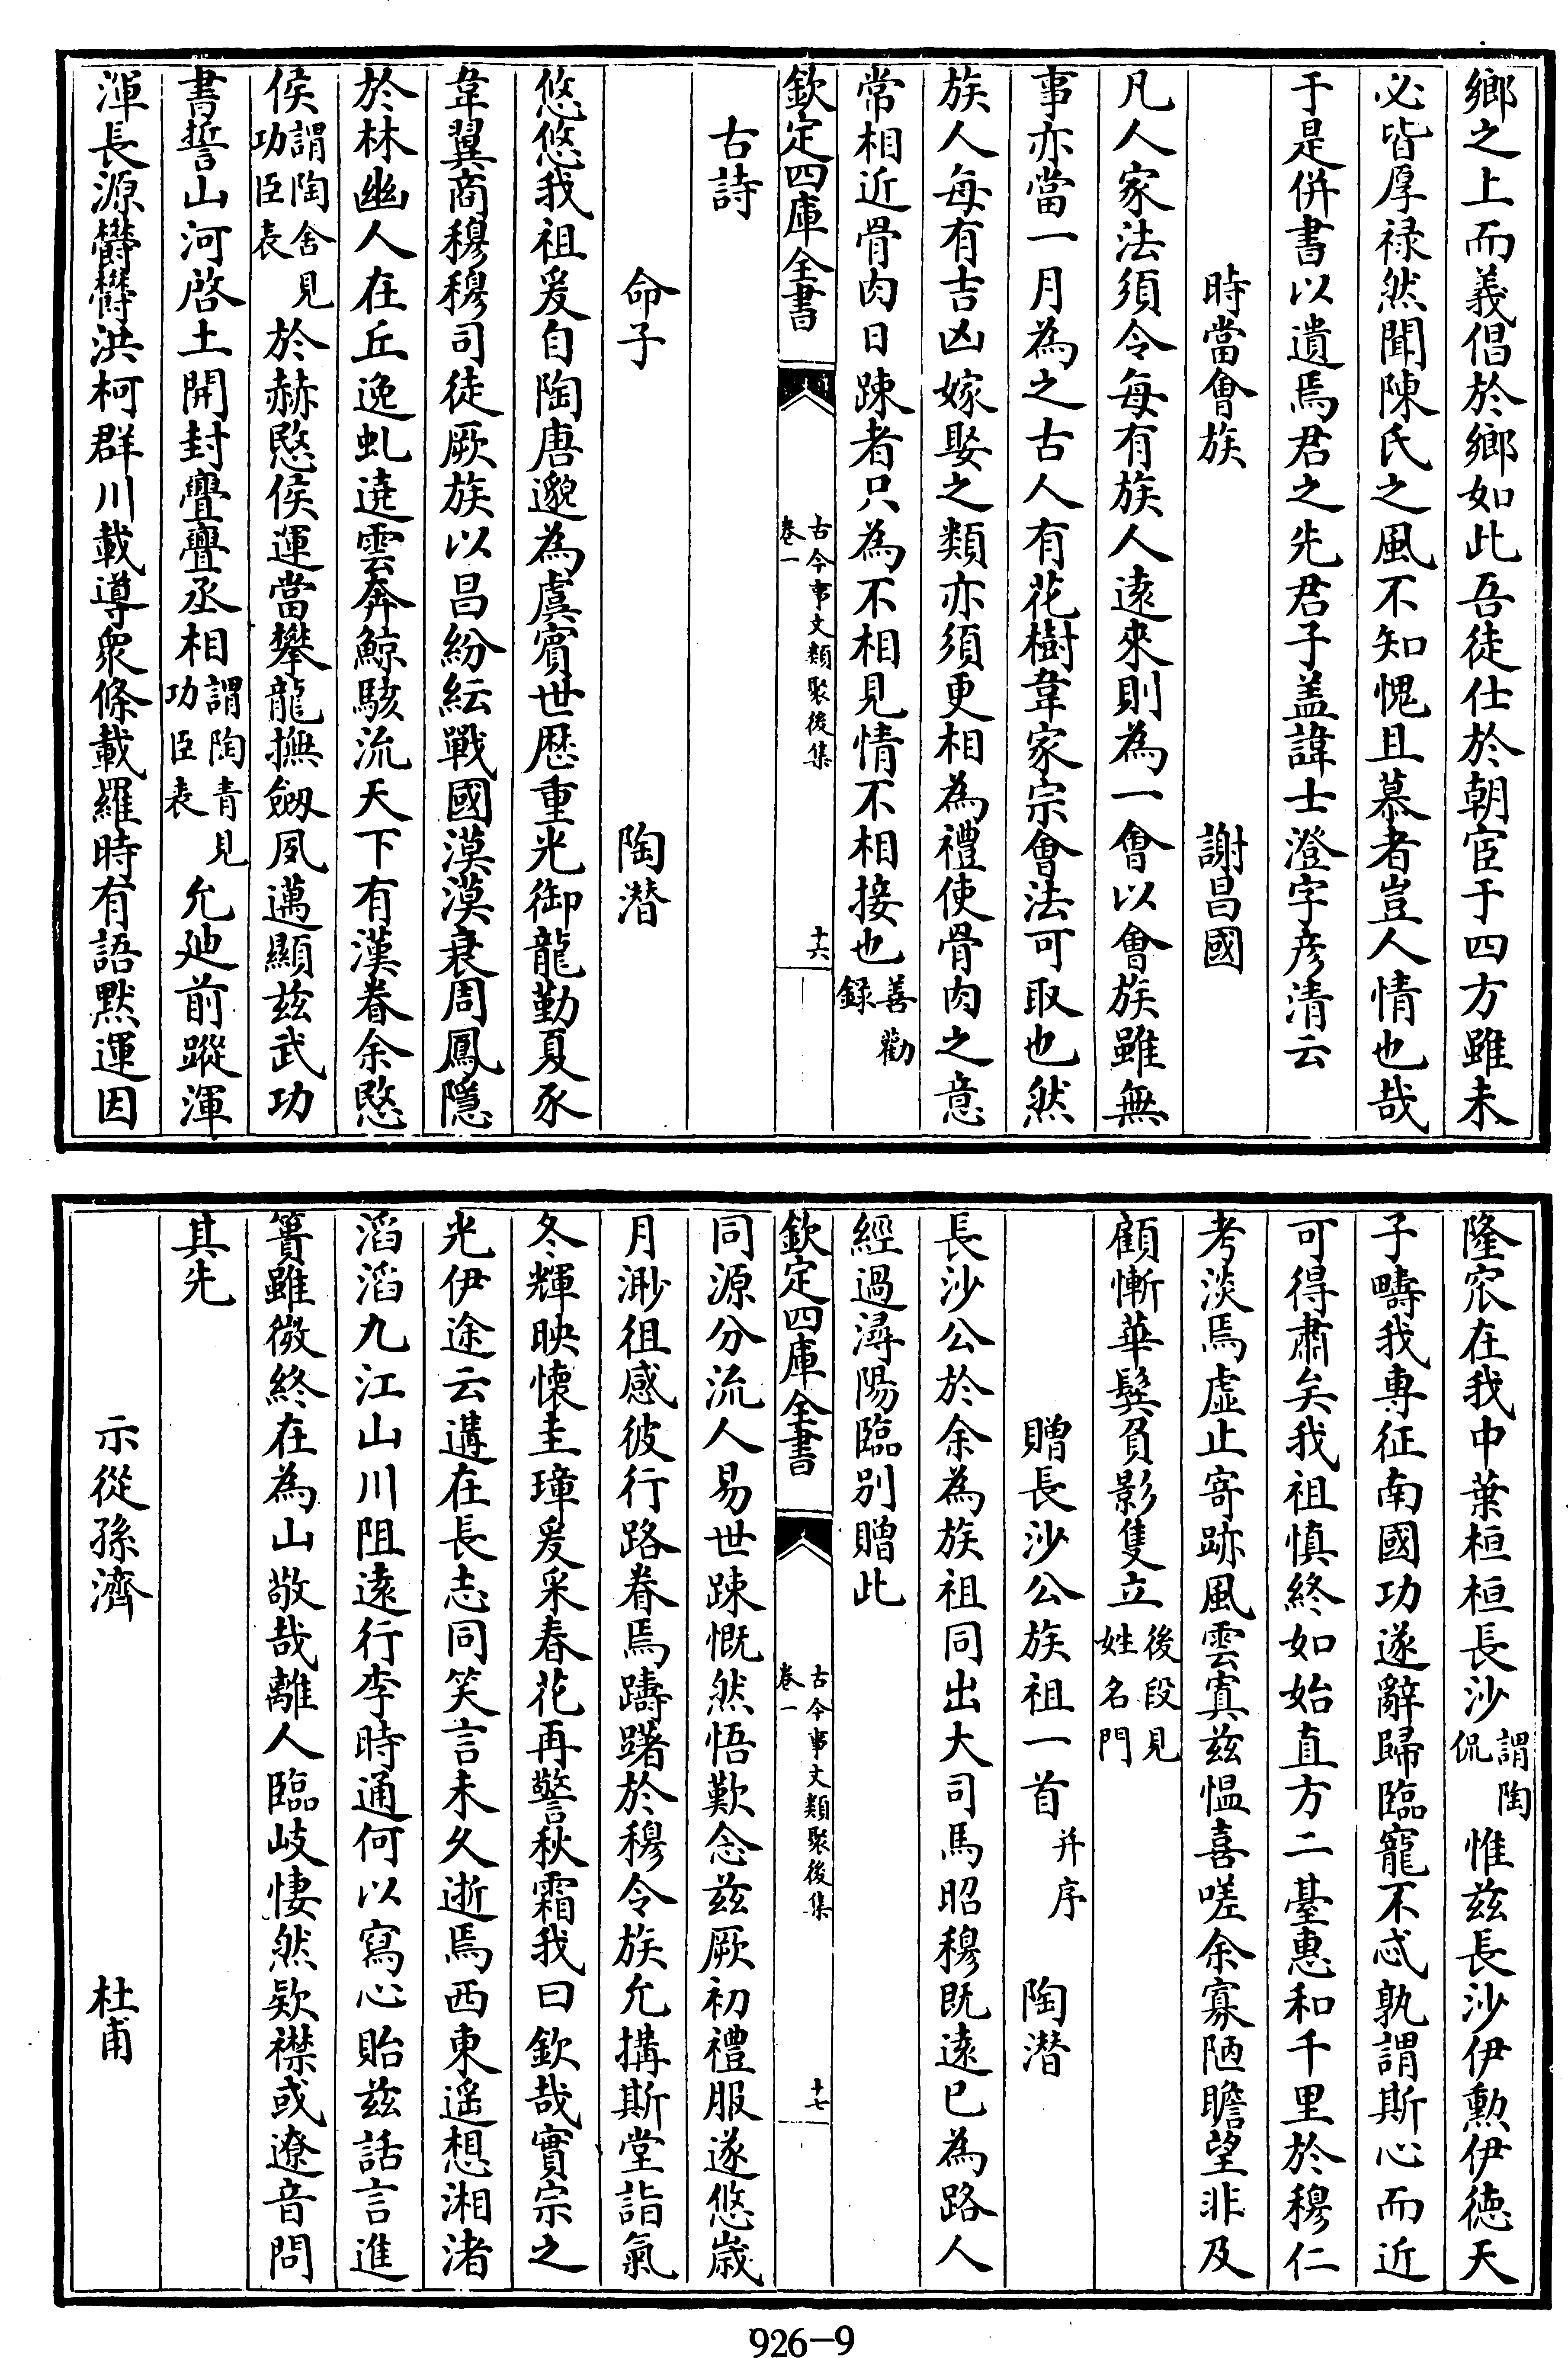 鄉之上而義倡於鄉如此吾徒仕於朝宦于四方雖未
必皆厚祿然聞陳氏之風不知愧且慕者豈人情也哉
于是併書以遺焉君之先君子盖諱士澄字彦清云
時當會族 謝昌國
凡人家法須令每有族人遠來則為一會以會族雖無
事亦當一月為之古人有花樹韋家宗會法可取也然
族人每有吉凶嫁娶之類亦須更相為禮使骨肉之意
常相近骨肉日踈者只為不相見情不相接也善勸録
欽定四庫全書 古今事文類聚後集 卷一 十六
古詩
命子 陶潛
悠悠我祖爰自陶唐邈為虞賓世歴重光御龍勤夏豕
韋翼商穆穆司徒厥族以昌紛紜戰國漠漠衰周鳳隱
於林幽人在丘逸虬遶雲奔鯨駭流天下有漢眷余愍
侯謂陶舍見功臣表於赫愍侯運當攀龍撫劔夙邁顯兹武功
書誓山河啓土開封亹亹丞相謂陶青見功臣表允廸前蹤渾
渾長源欝欝洪柯群川載導衆條載羅時有語黙運因
隆窊在我中葉桓桓長沙謂陶侃惟兹長沙伊勲伊徳天
子疇我専征南國功遂辭歸臨寵不忒孰謂斯心而近
可得肅矣我祖慎終如始直方二臺惠和千里於穆仁
考淡焉虚止寄跡風雲寘兹愠喜嗟余寡陋瞻望非及
顧慚華鬂負影隻立後段見姓名門
贈長沙公族祖一首并序 陶潛
長沙公於余為族祖同出大司馬昭穆既遠已為路人
經過潯陽臨别贈此
欽定四庫全書 古今事文類聚後集 卷一 十七
同源分流人易世踈慨然悟歎念兹厥初禮服遂悠歳
月渺徂感彼行路眷焉躊躇於穆令族允搆斯堂詣氣
冬輝映懐圭璋爰采春花再警秋霜我曰欽哉實宗之
光伊途云遘在長志同笑言未久逝焉西東遥想湘渚
滔滔九江山川阻遠行李時通何以寫心貽兹話言進
簣雖微終在為山敬哉離人臨岐悽然欵襟或遼音問
其先
示從孫濟 杜甫
926-9